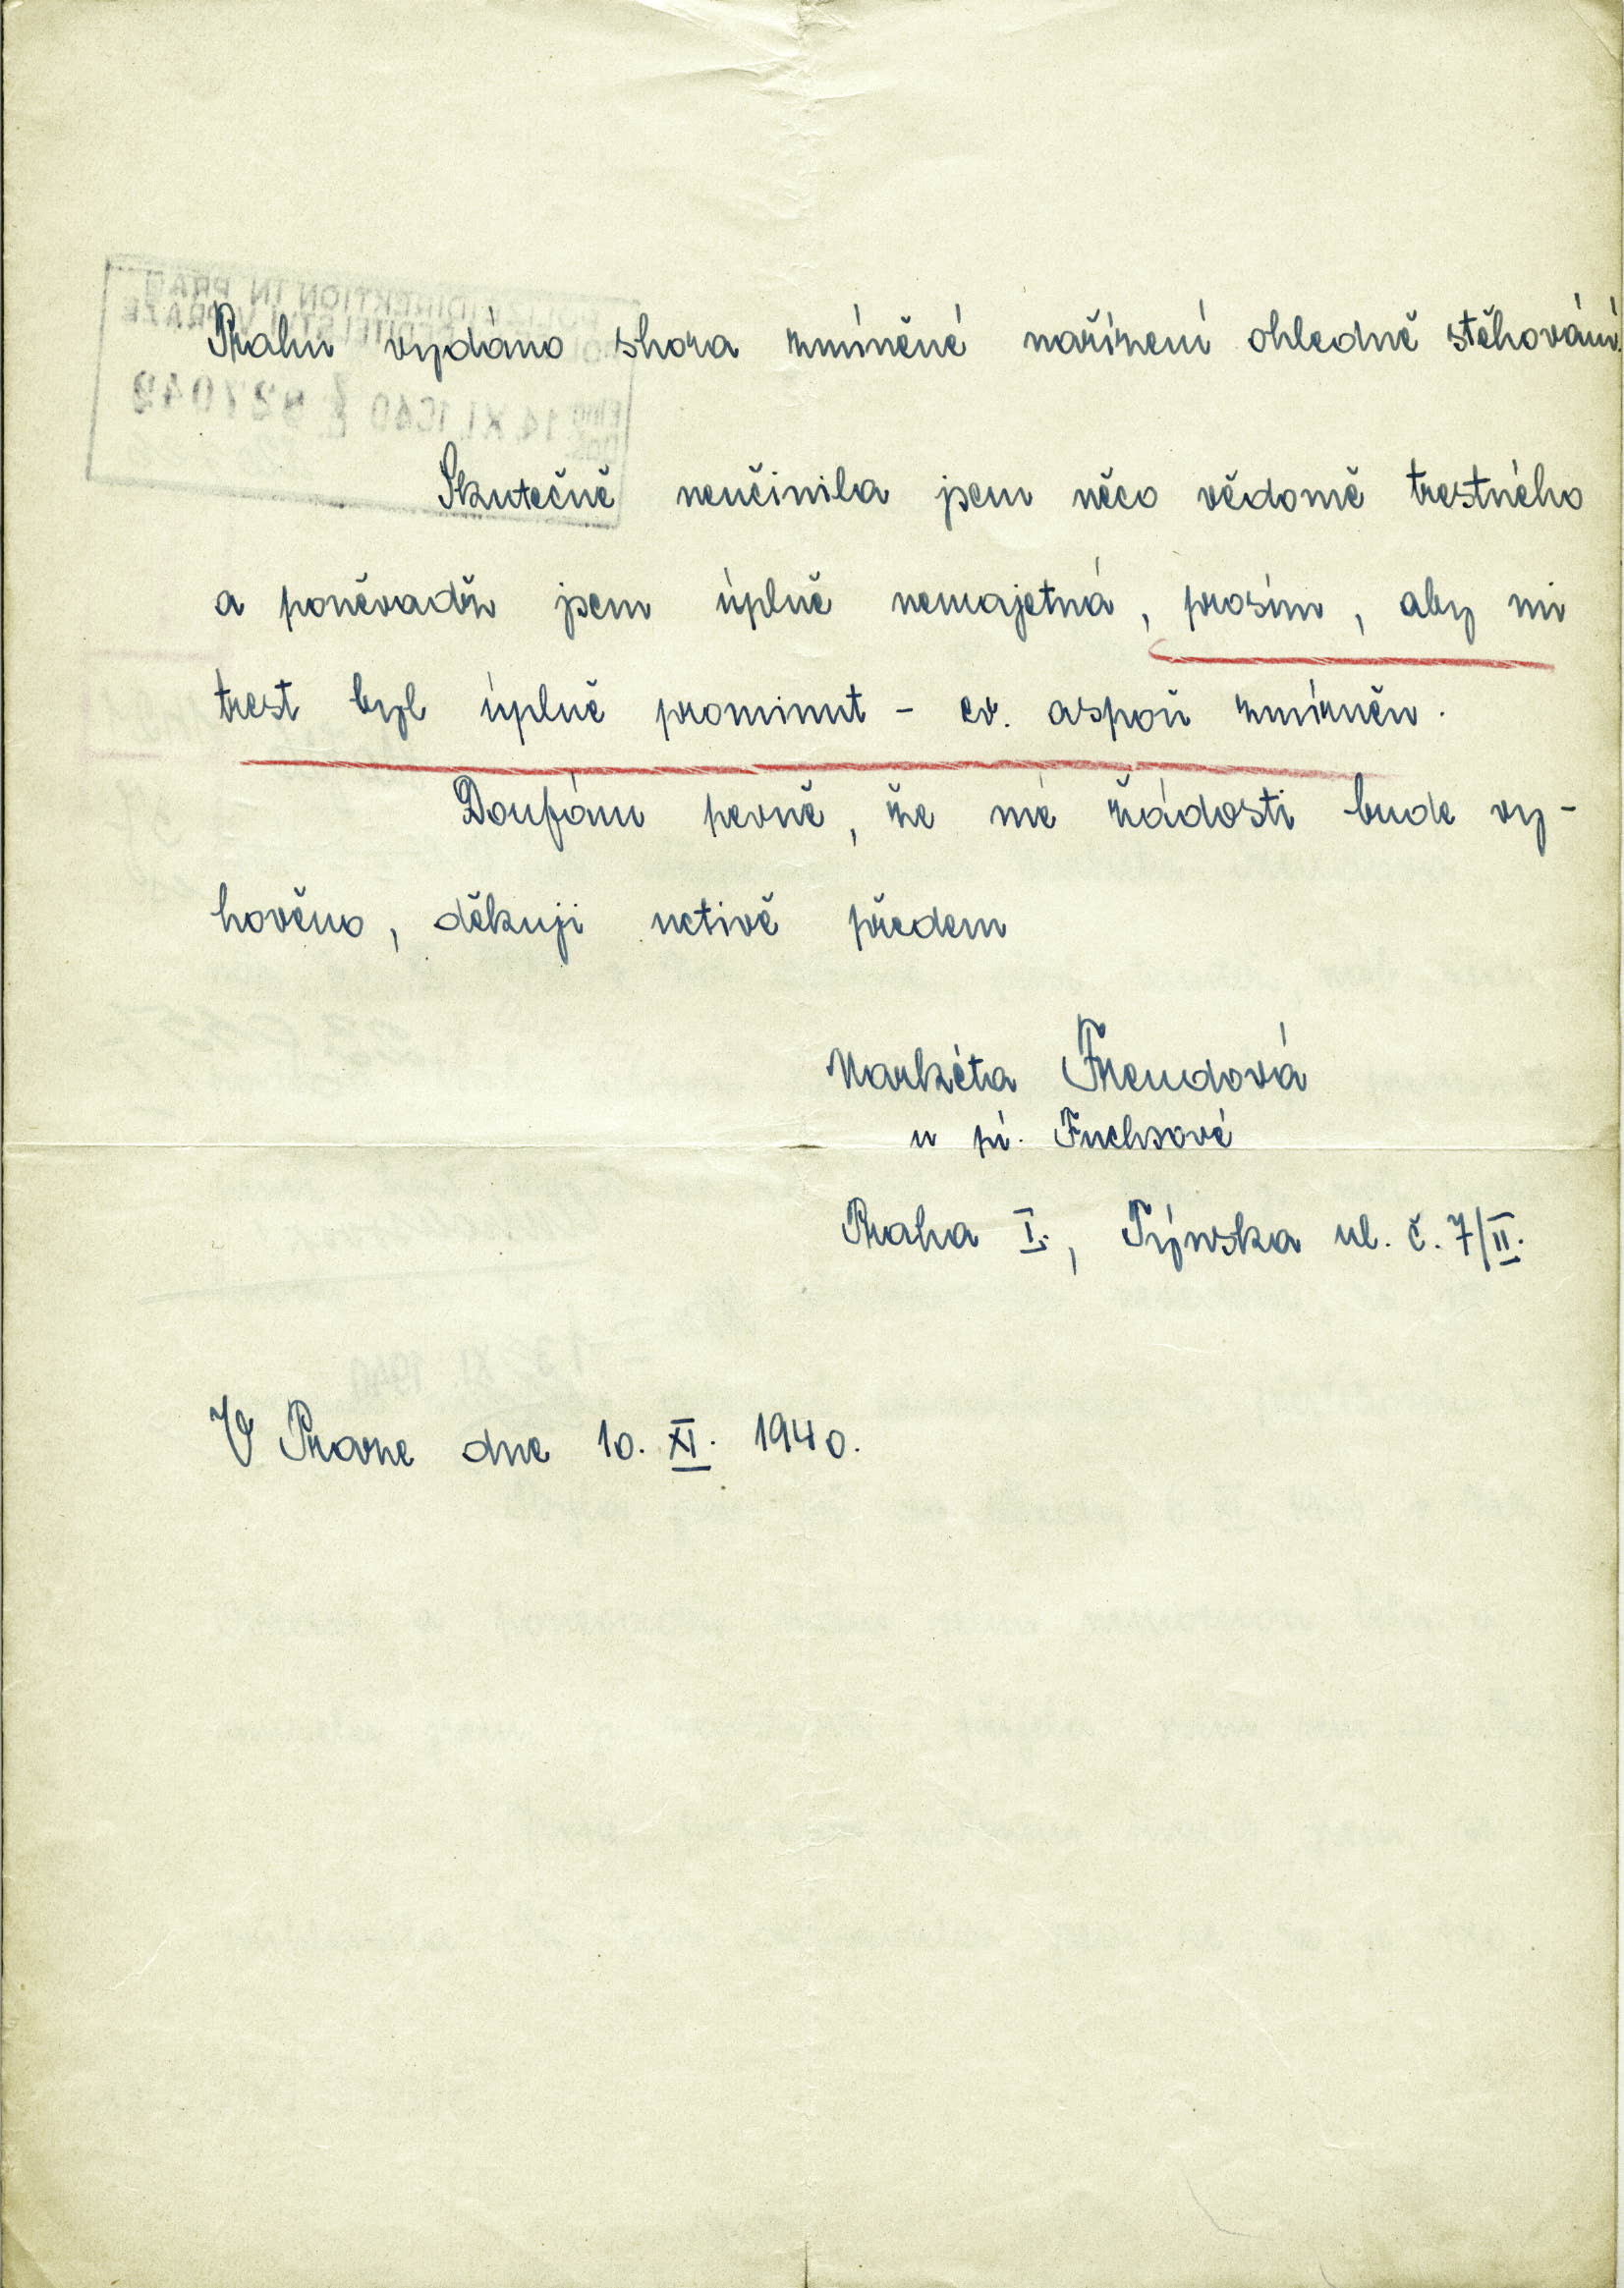 Prahu vydáno shora zmíněné nařízení ohledně stěhování.
Skutečně neučinila jsem něco vědomě trestného
a poněvadž jsem úplně nemajetná, prosím, aby mi
trest byl úplně prominut - ev. aspoň zmírněn.
Doufám pevně, že mé žádosti bude vy-
hověno, děkuji uctivě předem
Markéta Freudová
u pí. Fuchsové
Praha I., Týnska ul. č. 7/II.
V Praze dne 10. XI. 1940.
POLIZEIDIREKTION IN PRAG
14. XI. 1940
13. XI. 1940